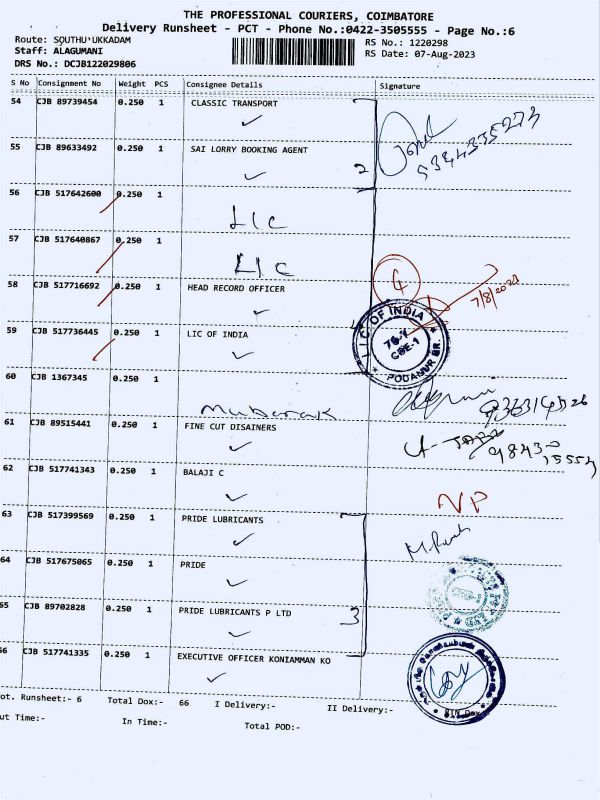 THE PROFESSIONAL COURIERS, COIMBATORE
Delivery Runsheet - PCT - Phone No.:0422-3505555 - Page No.:6
Route: SOUTHU'UKKADAM
Staff: ALAGUMANI
DRS No.: DCJB122029806
RS No.: 1220298
RS Date: 07-Aug-2023
S No Consignment No Weight PCS Consignee Details Signature
54 CJB 89739454 0.250 1 CLASSIC TRANSPORT
55 CJB 89633492 0.250 1 SAI LORRY BOOKING AGENT
2
56 CJB 517642600 0.250 1
LIC
57 CJB 517640867 0.250 1
LIC
58 CJB 517716692 0.250 1 HEAD RECORD OFFICER
4
7/8/2023
59 CJB 517736445 0.250 1 LIC OF INDIA
L.I.C OF INDIA
CBE-1
PODANUR BR.
60 CJB 1367345 0.250 1
Mubarak
61 CJB 89515441 0.250 1 FINE CUT DISAINERS
62 CJB 517741343 0.250 1 BALAJI C
NP
63 CJB 517399569 0.250 1 PRIDE LUBRICANTS
64 CJB 517675065 0.250 1 PRIDE
65 CJB 89702828 0.250 1 PRIDE LUBRICANTS P LTD
3
66 CJB 517741335 0.250 1 EXECUTIVE OFFICER KONIAMMAN KO
ot. Runsheet:- 6 Total Dox:- 66 I Delivery:- II Delivery:-
ut Time:- In Time:- Total POD:-